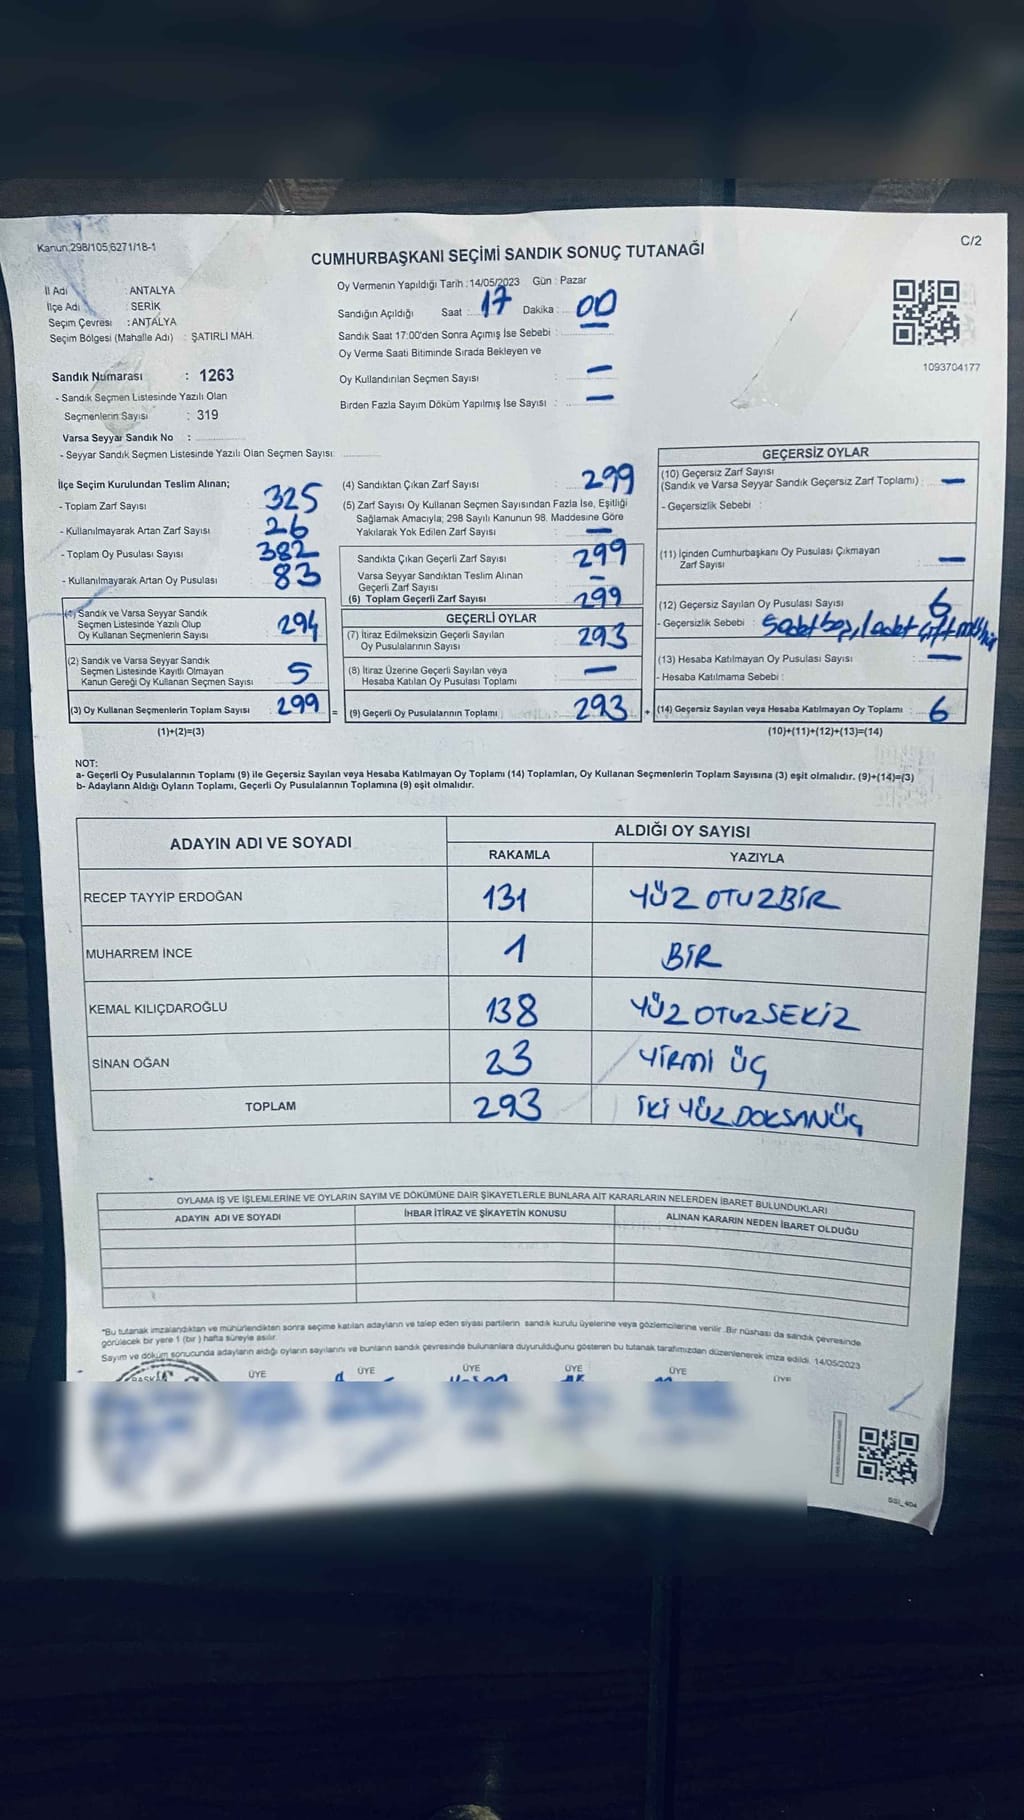 Kanun:298/105,6271/18-1
C/2
CUMHURBAŞKANI SEÇİMİ SANDIK SONUÇ TUTANAĞI
İl Adı : ANTALYA
İlçe Adı : SERİK
Seçim Çevresi : ANTALYA
Seçim Bölgesi (Mahalle Adı) : ŞATIRLI MAH.
Sandık Numarası : 1263
- Sandık Seçmen Listesinde Yazılı Olan
Seçmenlerin Sayısı : 319
Varsa Seyyar Sandık No :
- Seyyar Sandık Seçmen Listesinde Yazılı Olan Seçmen Sayısı:
Oy Vermenin Yapıldığı Tarih : 14/05/2023 Gün : Pazar
Sandığın Açıldığı Saat : 17 Dakika : 00
Sandık Saat 17:00'den Sonra Açımış İse Sebebi : —
Oy Verme Saati Bitiminde Sırada Bekleyen ve
Oy Kullandırılan Seçmen Sayısı : —
Birden Fazla Sayım Döküm Yapılmış İse Sayısı : —
1093704177
İlçe Seçim Kurulundan Teslim Alınan;
- Toplam Zarf Sayısı 325
- Kullanılmayarak Artan Zarf Sayısı 26
- Toplam Oy Pusulası Sayısı 382
- Kullanılmayarak Artan Oy Pusulası 83
(1) Sandık ve Varsa Seyyar Sandık
Seçmen Listesinde Yazılı Olup
Oy Kullanan Seçmenlerin Sayısı : 294
(2) Sandık ve Varsa Seyyar Sandık
Seçmen Listesinde Kayıtlı Olmayan
Kanun Gereği Oy Kullanan Seçmen Sayısı : 5
(3) Oy Kullanan Seçmenlerin Toplam Sayısı : 299
(1)+(2)=(3)
(4) Sandıktan Çıkan Zarf Sayısı : 299
(5) Zarf Sayısı Oy Kullanan Seçmen Sayısından Fazla İse, Eşitliği
Sağlamak Amacıyla; 298 Sayılı Kanunun 98. Maddesine Göre
Yakılarak Yok Edilen Zarf Sayısı : —
Sandıkta Çıkan Geçerli Zarf Sayısı : 299
Varsa Seyyar Sandıktan Teslim Alınan
Geçerli Zarf Sayısı : —
(6) Toplam Geçerli Zarf Sayısı : 299
GEÇERLİ OYLAR
(7) İtiraz Edilmeksizin Geçerli Sayılan
Oy Pusulalarının Sayısı : 293
(8) İtiraz Üzerine Geçerli Sayılan veya
Hesaba Katılan Oy Pusulası Toplamı : —
= (9) Geçerli Oy Pusulalarının Toplamı : 293
GEÇERSİZ OYLAR
(10) Geçersiz Zarf Sayısı
(Sandık ve Varsa Seyyar Sandık Geçersiz Zarf Toplamı) : —
- Geçersizlik Sebebi :
(11) İçinden Cumhurbaşkanı Oy Pusulası Çıkmayan
Zarf Sayısı : —
(12) Geçersiz Sayılan Oy Pusulası Sayısı : 6
- Geçersizlik Sebebi : 5 adet boş, 1 adet çift mühür
(13) Hesaba Katılmayan Oy Pusulası Sayısı : —
- Hesaba Katılmama Sebebi :
+ (14) Geçersiz Sayılan veya Hesaba Katılmayan Oy Toplamı : 6
(10)+(11)+(12)+(13)=(14)
NOT:
a- Geçerli Oy Pusulalarının Toplamı (9) ile Geçersiz Sayılan veya Hesaba Katılmayan Oy Toplamı (14) Toplamları, Oy Kullanan Seçmenlerin Toplam Sayısına (3) eşit olmalıdır. (9)+(14)=(3)
b- Adayların Aldığı Oyların Toplamı, Geçerli Oy Pusulalarının Toplamına (9) eşit olmalıdır.
ADAYIN ADI VE SOYADI
ALDIĞI OY SAYISI
RAKAMLA YAZIYLA
RECEP TAYYİP ERDOĞAN 131 YÜZ OTUZBİR
MUHARREM İNCE 1 BİR
KEMAL KILIÇDAROĞLU 138 YÜZ OTUZSEKİZ
SİNAN OĞAN 23 YİRMİ ÜÇ
TOPLAM 293 İKİ YÜZ DOKSANÜÇ
OYLAMA İŞ VE İŞLEMLERİNE VE OYLARIN SAYIM VE DÖKÜMÜNE DAİR ŞİKAYETLERLE BUNLARA AİT KARARLARIN NELERDEN İBARET BULUNDUKLARI
ADAYIN ADI VE SOYADI İHBAR İTİRAZ VE ŞİKAYETİN KONUSU ALINAN KARARIN NEDEN İBARET OLDUĞU
*Bu tutanak imzalandıktan ve mühürlendikten sonra seçime katılan adayların ve talep eden siyasi partilerin sandık kurulu üyelerine veya gözlemcilerine verilir. Bir nüshası da sandık çevresinde
görülecek bir yere 1 (bir) hafta süreyle asılır.
Sayım ve döküm sonucunda adayların aldığı oyların sayılarını ve bunların sandık çevresinde bulunanlara duyurulduğunu gösteren bu tutanak tarafımızdan düzenlenerek imza edildi. 14/05/2023
BAŞK ÜYE ÜYE ÜYE ÜYE ÜYE ÜYE